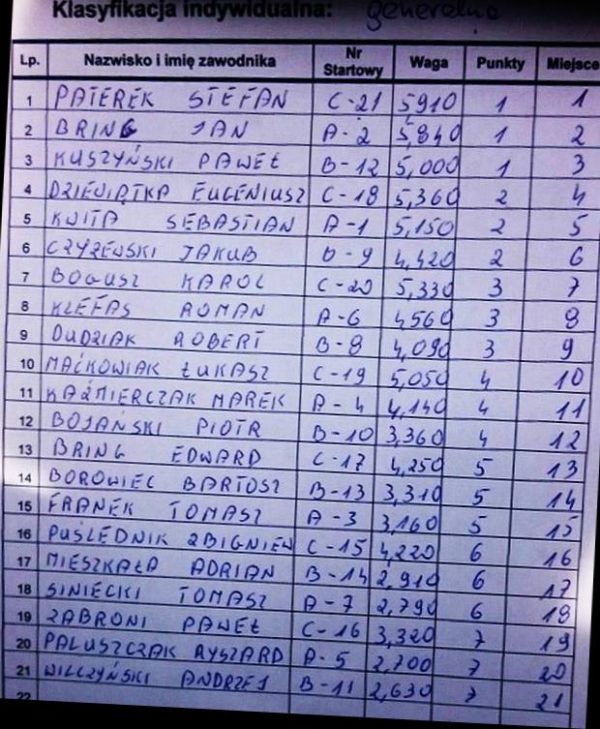 Klasyfikacja indywidualna: generalna
Lp. Nazwisko i imię zawodnika Nr Startowy Waga Punkty Miejsce
1 PATEREK STEFAN C-21 5910 1 1
2 BRING JAN A-2 5,840 1 2
3 KUSZYŃSKI PAWEŁ B-12 5,000 1 3
4 DZIEWIĄTKA EUGENIUSZ C-18 5,360 2 4
5 KWITA SEBASTIAN A-1 5,150 2 5
6 CZYŻEWSKI JAKUB B-9 4,420 2 6
7 BOGUSZ KAROL C-20 5,330 3 7
8 KLEFAS ROMAN A-6 4560 3 8
9 DUDZIAK ROBERT B-8 4,090 3 9
10 MAĆKOWIAK ŁUKASZ C-19 5,050 4 10
11 KAŹMIERCZAK MAREK A-4 4,140 4 11
12 BOJAŃSKI PIOTR B-10 3,360 4 12
13 BRING EDWARD C-17 4,250 5 13
14 BOROWIEC BARTOSZ B-13 3,310 5 14
15 FRANEK TOMASZ A-3 3,160 5 15
16 PUŚLEDNIK ZBIGNIEW C-15 4,220 6 16
17 MIESZKAŁA ADRIAN B-14 2,910 6 17
18 SINIECKI TOMASZ A-7 2,790 6 18
19 ZABRONI PAWEŁ C-16 3,320 7 19
20 PALUSZCZAK RYSZARD A-5 2,700 7 20
21 WILCZYŃSKI ANDRZEJ B-11 2,630 7 21
22